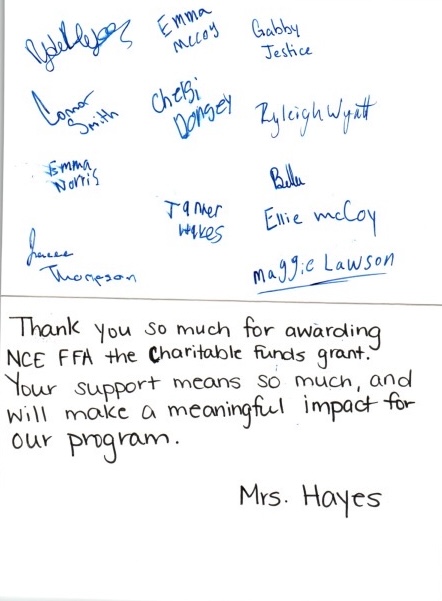 Emma
McCoy
Gabby
Jestice
Conor
Smith
Chelsi
Dorsey
Ryleigh Wyatt
Emma
Norris
Tanner
Wikes
Bella
Ellie McCoy
Thompson
Maggie Lawson
Thank you so much for awarding
NCE FFA the Charitable Funds grant.
Your support means so much, and
will make a meaningful impact for
our program.
Mrs. Hayes